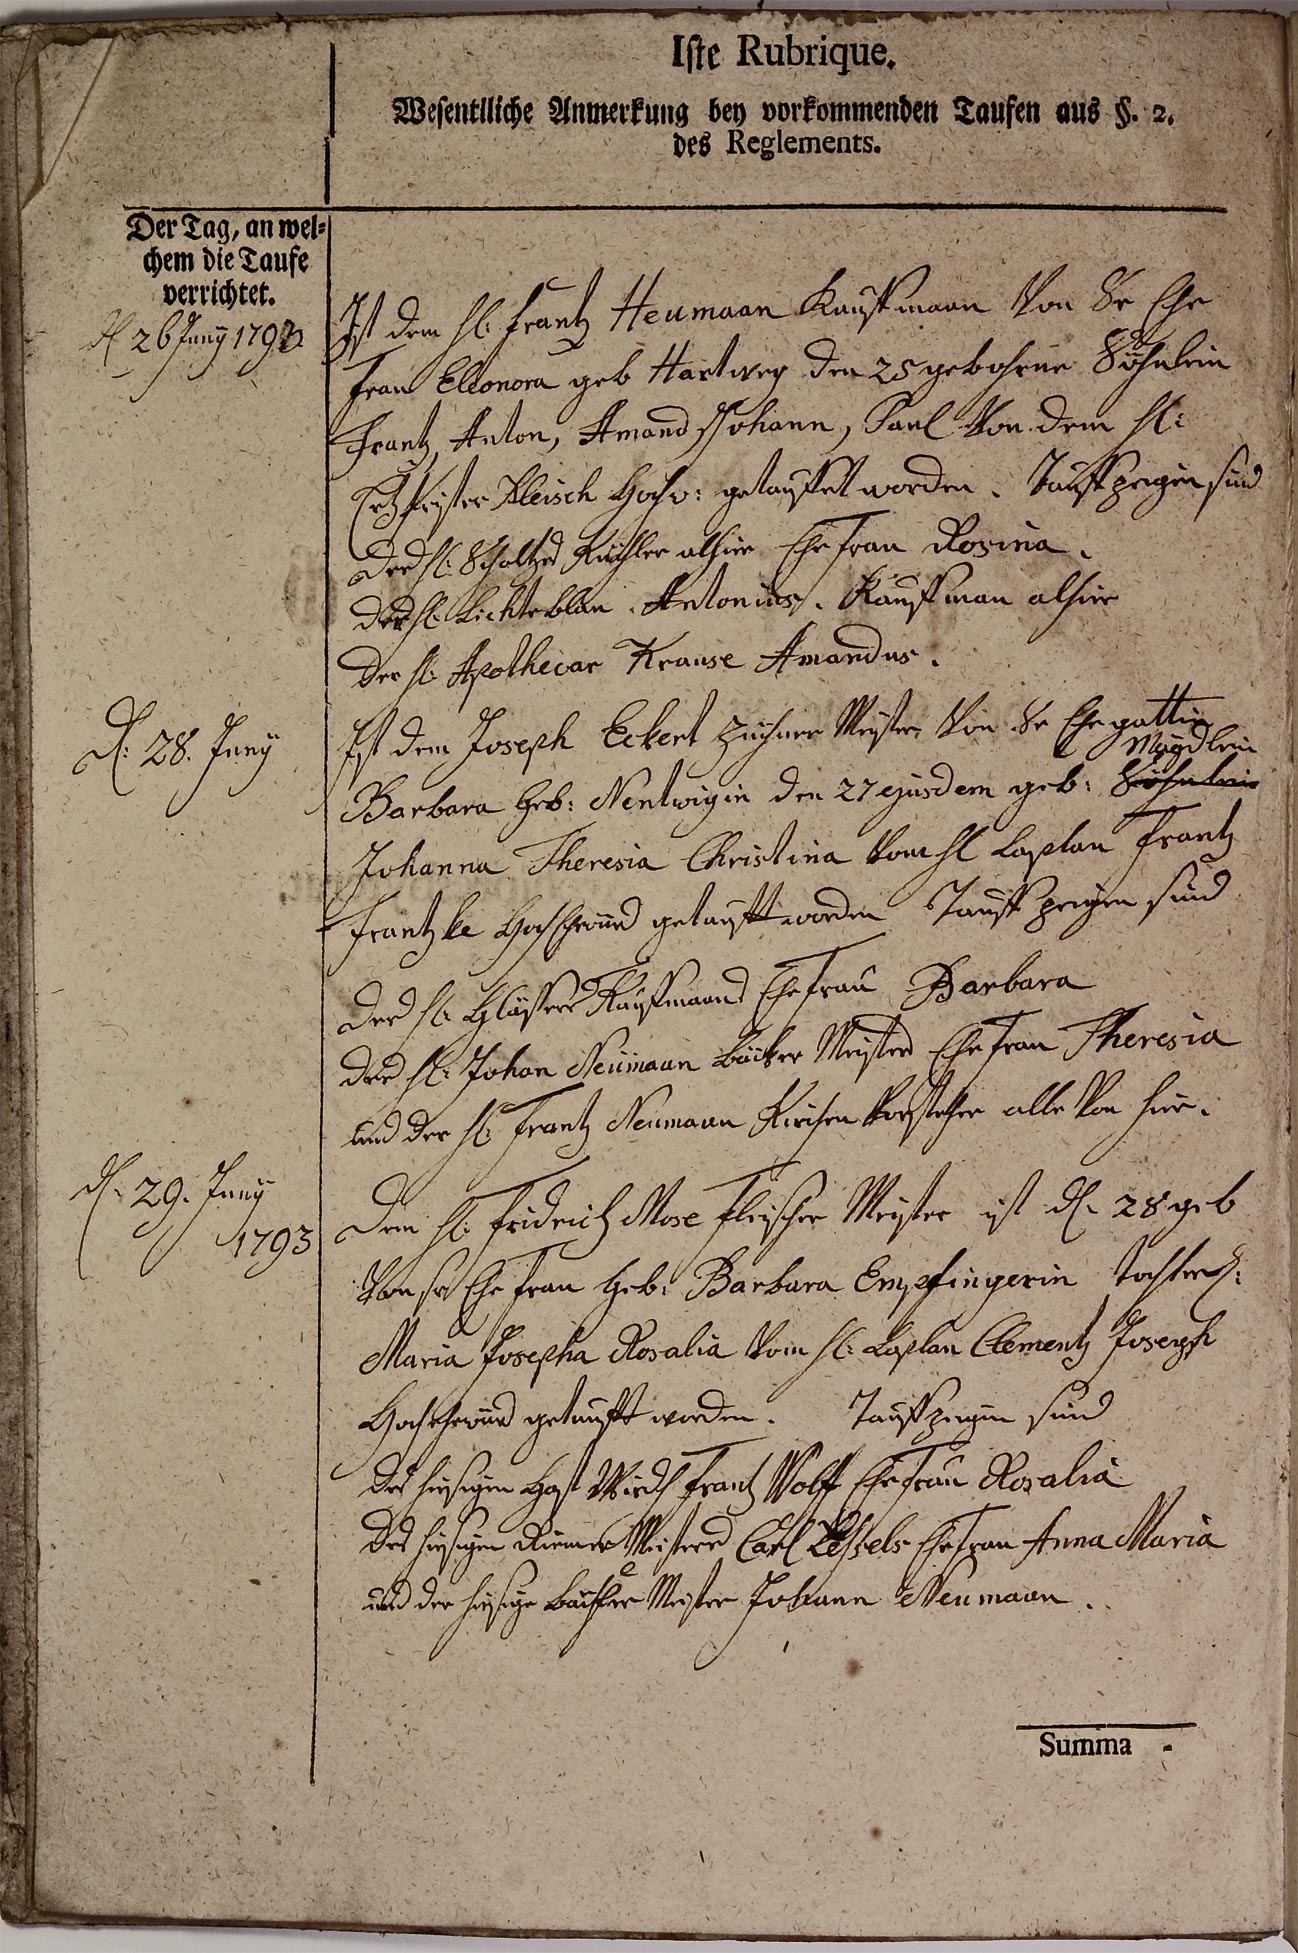 Iste Rubrique.
Wesentlliche Anmerkung bey vorkommenden Taufen aus §. 2.
des Reglements.
Der Tag, an wel-
chem die Taufe
verrichtet.
d 26 Juny 1793.
Ist dem H: Frantz Heumann Kauffmann Von Sr Ehe
Frau Eleonora geb Hartweg den 25 gebohrne Söhnlein
Frantz, Anton, Amand Johann, Paul Von dem H:
Ertzprister Kleisch Hochw: getauffet worden. Tauffzeigen sind
des H: Scholtzes Küchler alhier Ehe Frau Rosina.
der H: Lichteblau Antonius. Kauffman alhier
der H: Apothecar Krause Amandus.
d: 28. Juny
Ist dem Joseph Eckert Züchner Meister Von Sr Ehegattin
Mägdlein
Barbara geb: Nentwigin den 27 ejusdem geb: Söhnlein
Johanna Theresia Christina Vom H Caplan Frantz
Frantzke Hochehrwürd getaufft worden Tauff zeigen sind
des H: Glässers Kauffmanns Ehe Frau Barbara
des H: Johan Neümann Bäcker Meisters Ehe Frau Theresia
und der H: Frantz Neumann Kirchen Vorsteher alle Von hier.
d: 29. Juny
1793
Dem H: Fridrich Mose Fleischer Meister ist d: 28 geb
Von sr Ehe Frau geb: Barbara Empfingerin Tochter:
Maria Josepha Rosalia Vom H: Caplan Clementz Joseph
Hochehrwürd getaufft worden. Tauffzeigen sind
des hiesigen Gast Wirth Frantz Wolff Ehe Frau Rosalia
des hiesigen Riemer Meisters Carl Ehe Frau Anna Maria
und der hiesige Bäcker Meister Johann Neumann.
Summa -